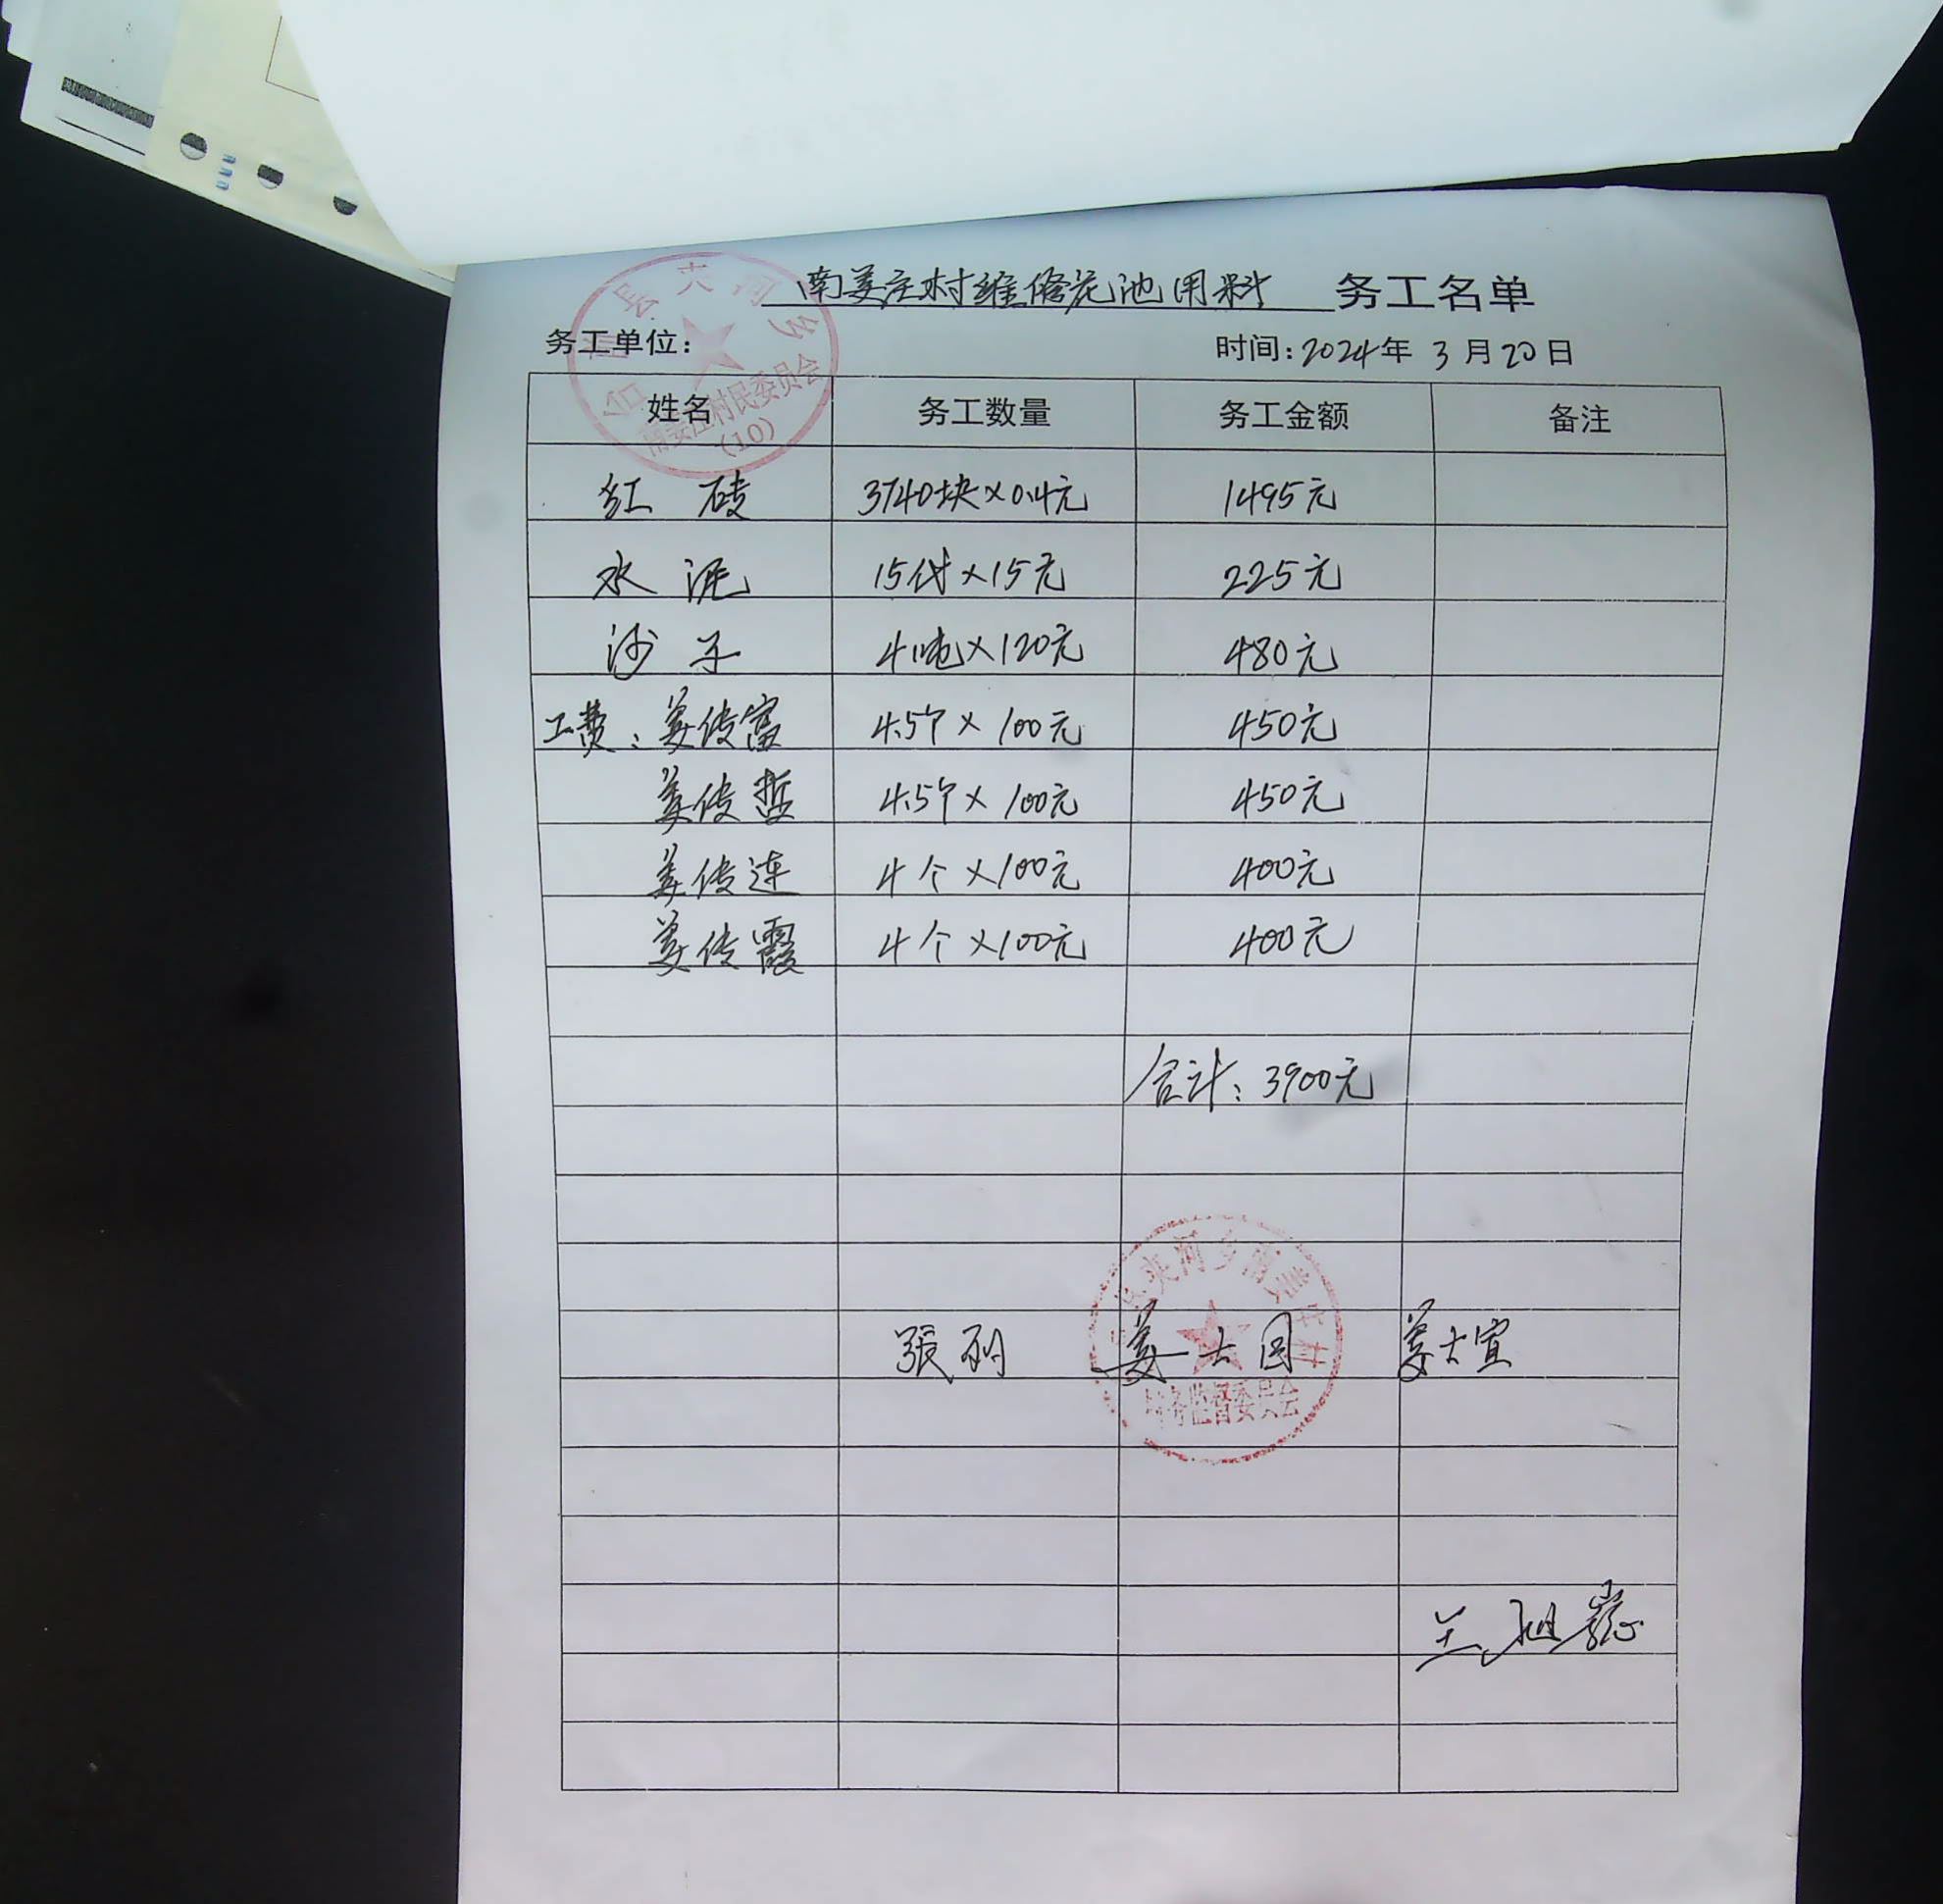 南姜庄村维修花池用料 务工名单
务工单位： 时间：2024年 3月20日
姓名 务工数量 务工金额 备注
红砖 3740块×0.4元 1495元
水泥 15代×15元 225元
沙子 4吨×120元 480元
工费：姜传富 4.5个×100元 450元
姜传哲 4.5个×100元 450元
姜传连 4个×100元 400元
姜传霞 4个×100元 400元
合计：3900元
夹河乡
南姜庄村民委员会
(10)
夹河乡南姜庄村
村务监督委员会
張 姜士国 姜士宣